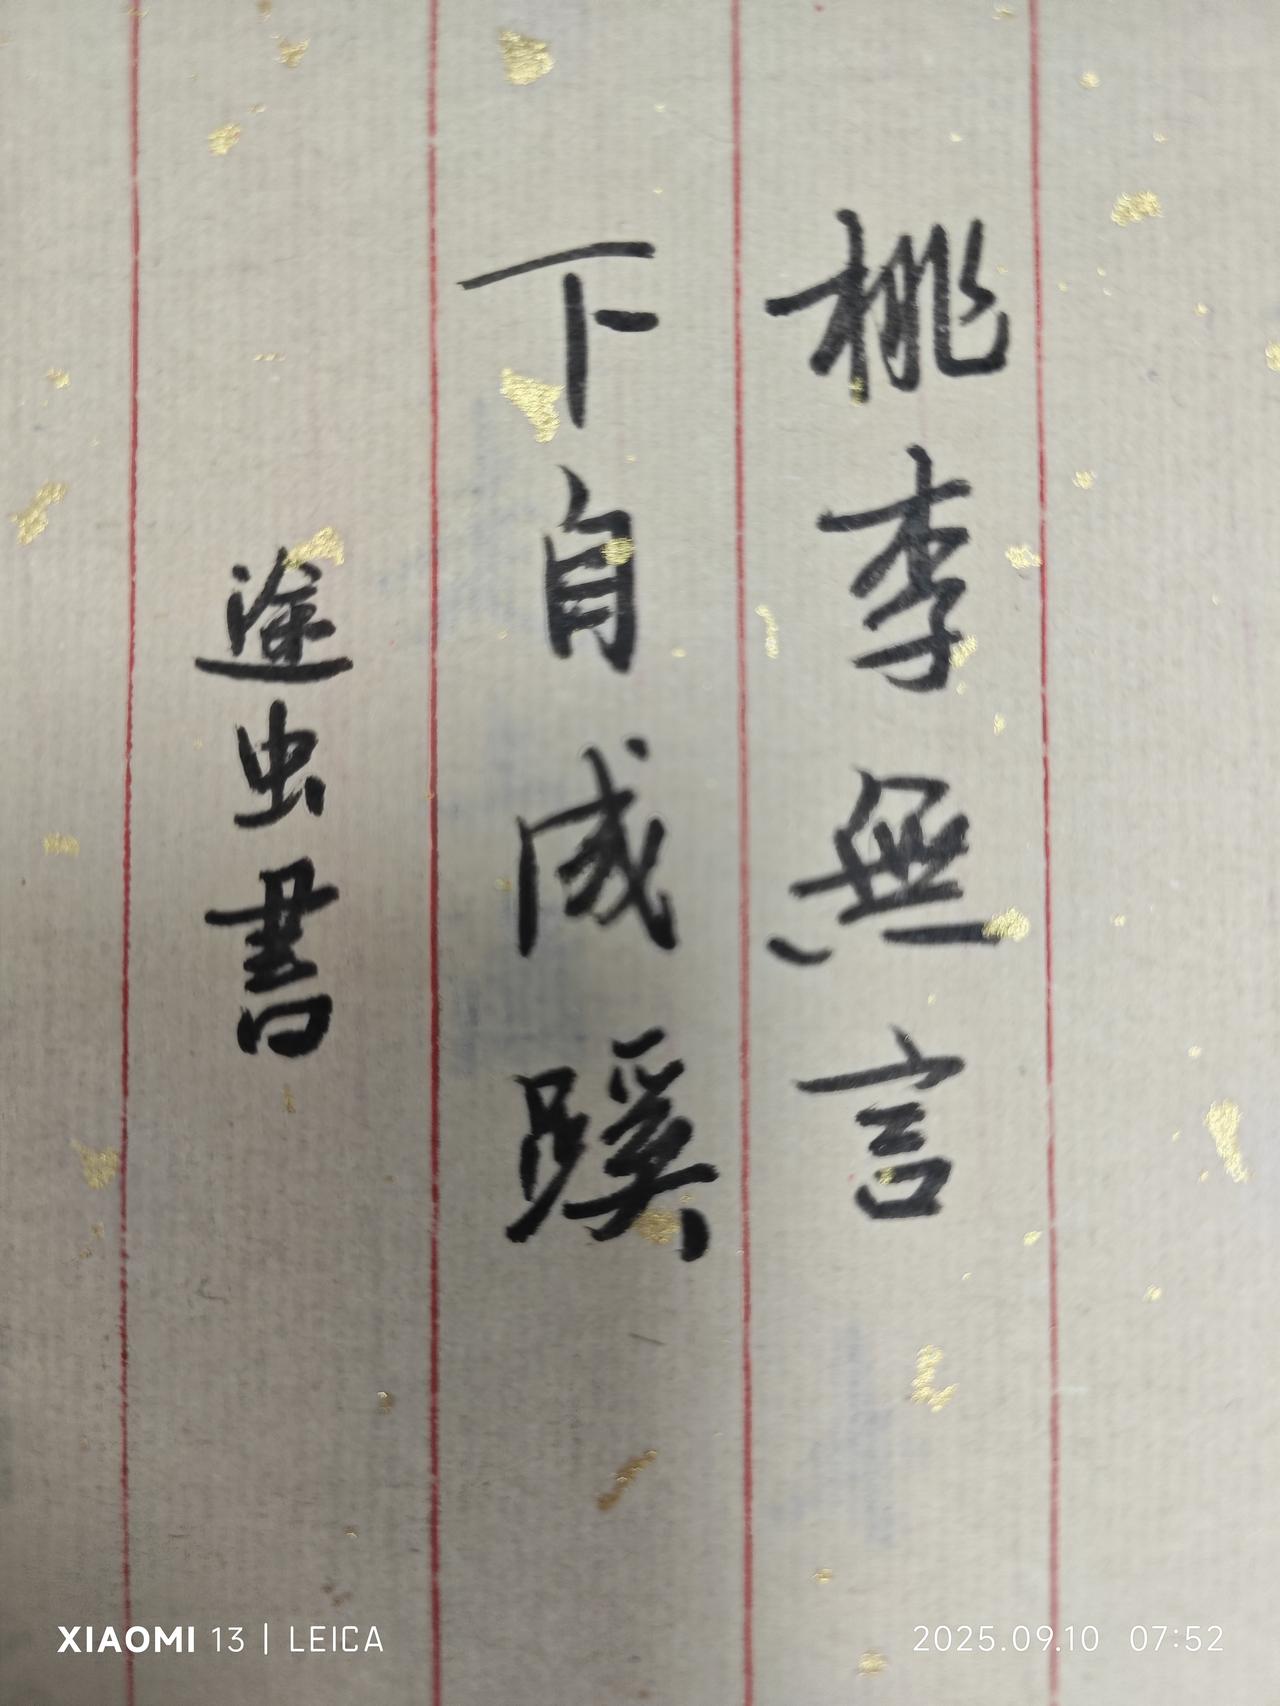 桃李無言
下自成蹊
途虫書
XIAOMI 13 | LEICA
2025.09.10 07:52